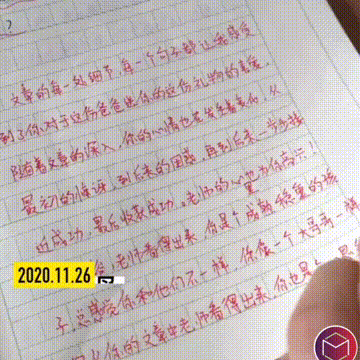 ?
文章的每一处细节,每一个句子都让我感受
到了你对于这份爸爸出你的这份礼物的喜爱。
随着文章的深入,你的心情也在发生着变化,从
最初的惊讶,到后来的困惑,再到后来一步步接
近成功,最后收获成功,老师的心里为你高兴!
老师看得出来,你是个成熟稳重的孩
子,总感觉你和他们不一样,你像一个大哥哥一样
你的文章中老师看得出来,你也是个
2020.11.26